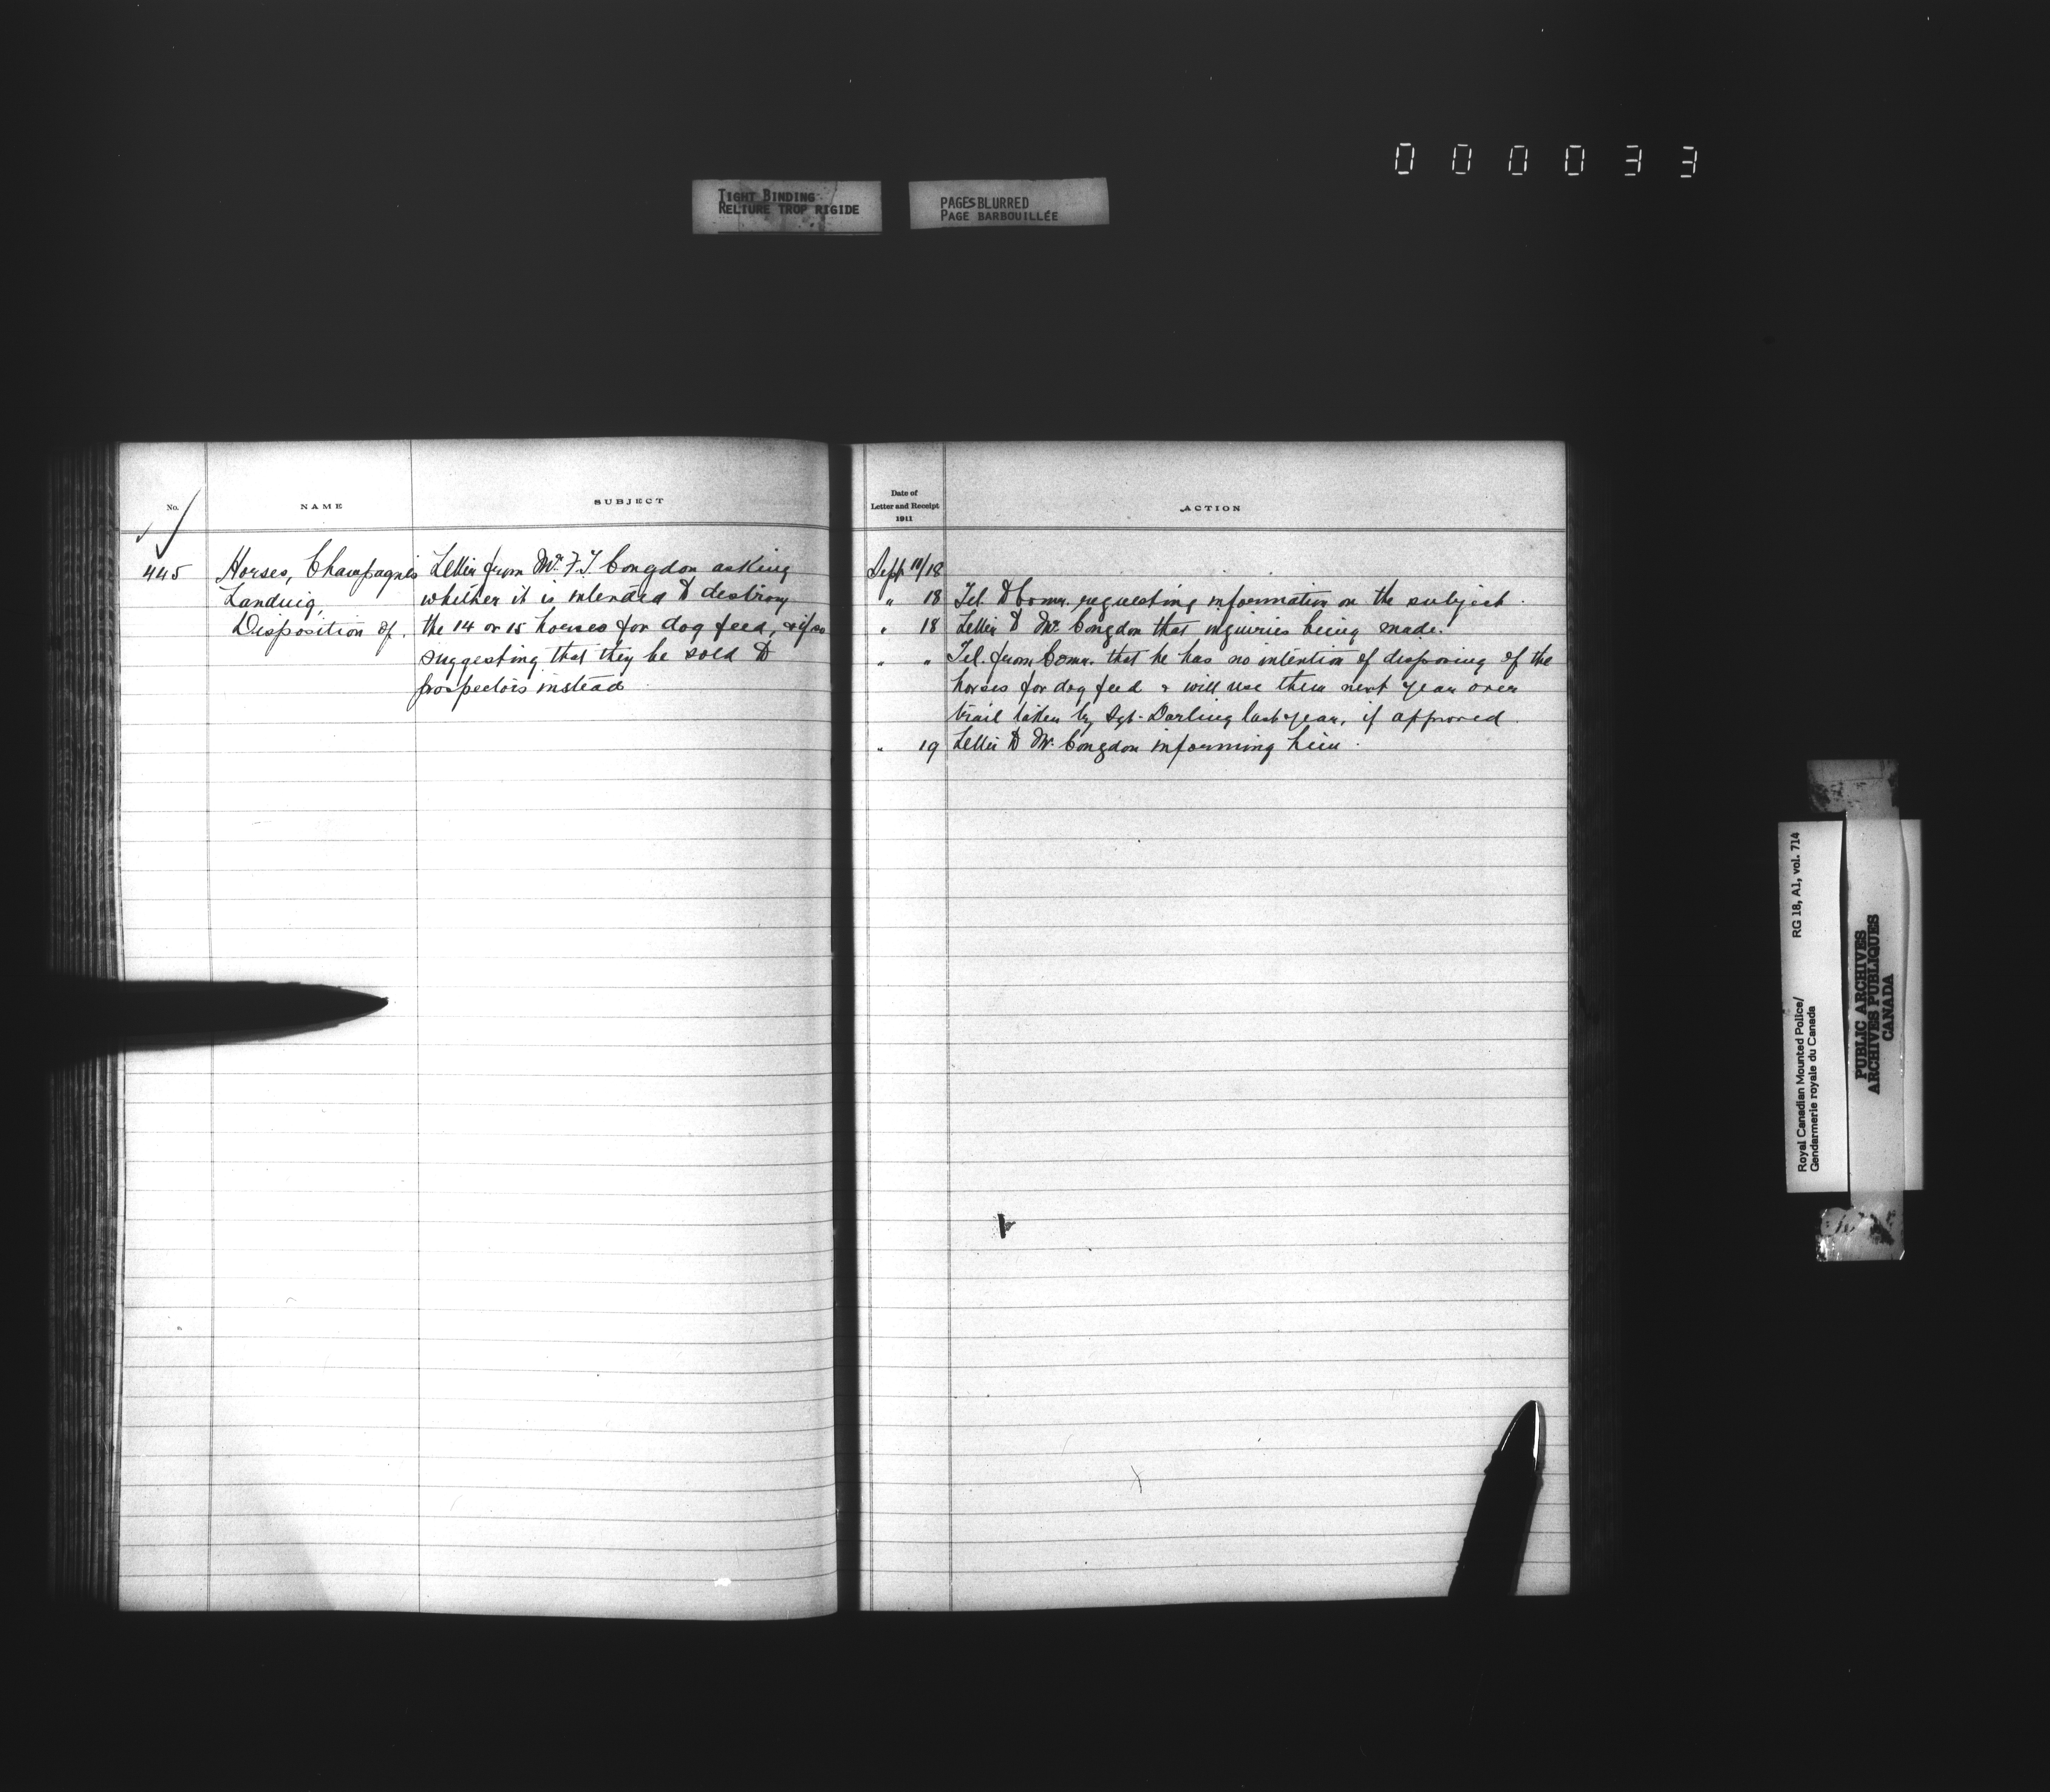 000033
TIGHT BINDING
RELIURE TROP RIGIDE
PAGES BLURRED
PAGE BARBOUILLÉE
No.
NAME
SUBJECT
445
Horses, Champagnes
Landing,
Disposition of.
Letter from Mr. F. T. Congdon asking
whether it is intended to destroy
the 14 or 15 horses for dog feed, & if so
suggesting that they be sold to
prospectors instead
Date of
Letter and Receipt
1911
ACTION
Sept 11/18
" 18 Tel. to Comr. requesting information on the subject.
" 18 Letter to Mr. Congdon that inquiries being made.
" " Tel. from Comr. that he has no intention of disposing of the
horses for dog feed & will use them next year over
trail taken by Sgt. Darling last year, if approved.
" 19 Letter to Mr. Congdon informing him.
RG 18, A1, vol. 714
Royal Canadian Mounted Police/
Gendarmerie royale du Canada
PUBLIC ARCHIVES
ARCHIVES PUBLIQUES
CANADA